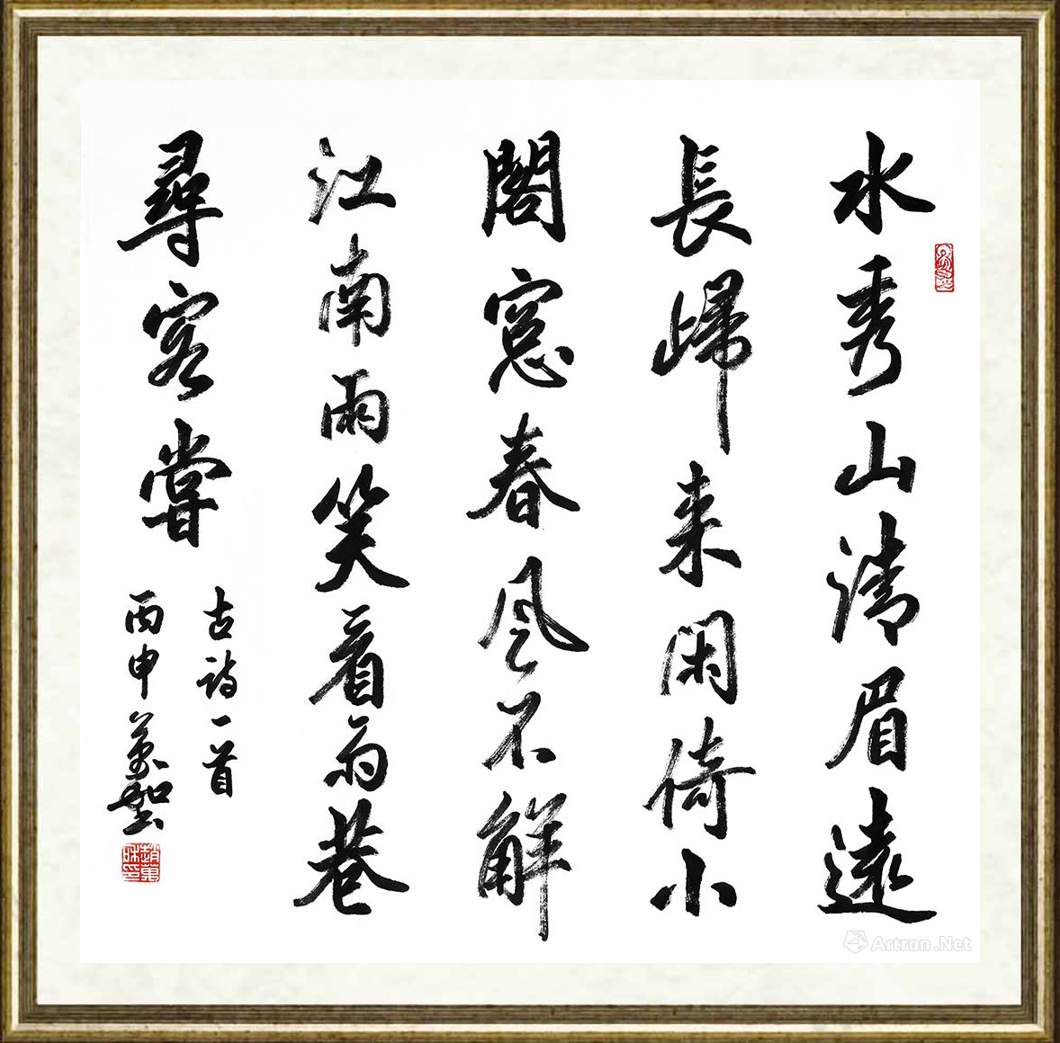 水秀山清眉遠
長歸来閑倚小
閣窓春風不解
江南雨笑看雨巷
尋客嘗
古詩一首
丙申萬
Artron.Net